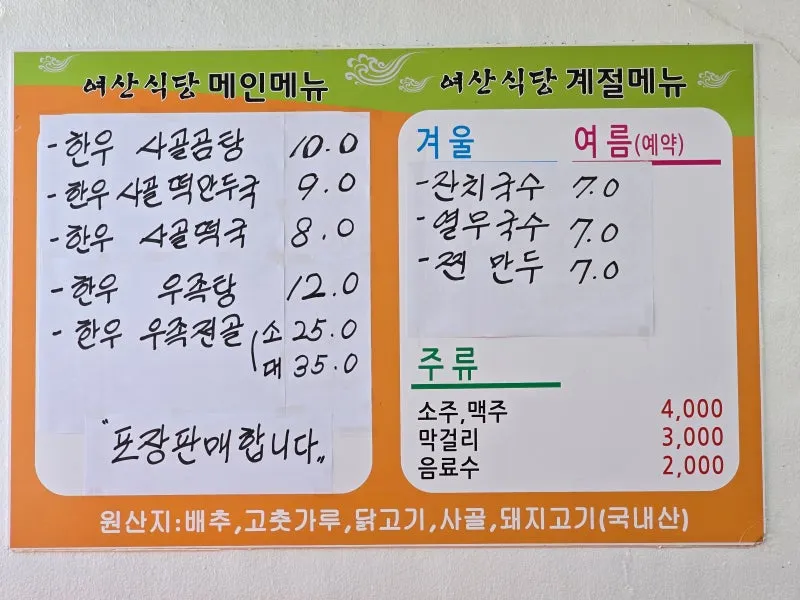 여산식당 메인메뉴
- 한우 사골곰탕 10.0
- 한우 사골떡만두국 9.0
- 한우 사골떡국 8.0
- 한우 우족탕 12.0
- 한우 우족전골 소 25.0
대 35.0
"포장판매합니다"
여산식당 계절메뉴
겨울 여름(예약)
- 잔치국수 7.0
- 열무국수 7.0
- 찐 만두 7.0
주류
소주,맥주 4,000
막걸리 3,000
음료수 2,000
원산지:배추,고춧가루,닭고기,사골,돼지고기(국내산)